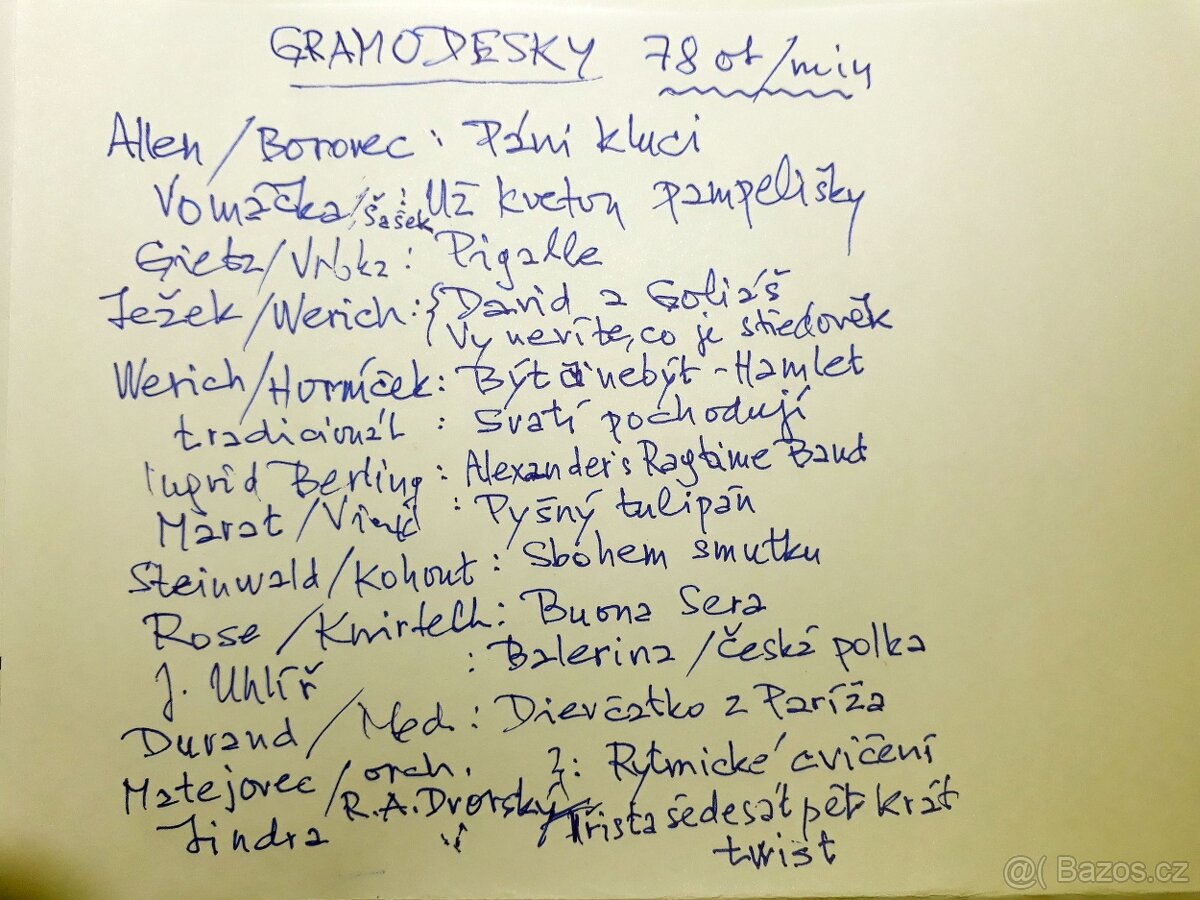 GRAMODESKY 78 ot/min
Allen/Borovec: Páni kluci
Vomáčka/Šašek: Už kvetou pampelišky
Gietz/Vrbka: Pigalle
Ježek/Werich: {David a Goliáš
Vy nevíte, co je středověk
Werich/Horníček: Být či nebýt - Hamlet
tradicionál: Svatí pochodují
Ingrid Berling: Alexander's Ragtime Band
Marat/: Pyšný tulipán
Steinwald/Kohout: Sbohem smutku
Rose/: Buona Sera
J. Uhlíř: Balerina/Česká polka
Durand/Med.: Dievčatko z Paríža
Matejovec/orch. R.A.Dvorský: Rytmické cvičení
Jindra: Třista šedesát pět krát
twist
@( Bazos.cz